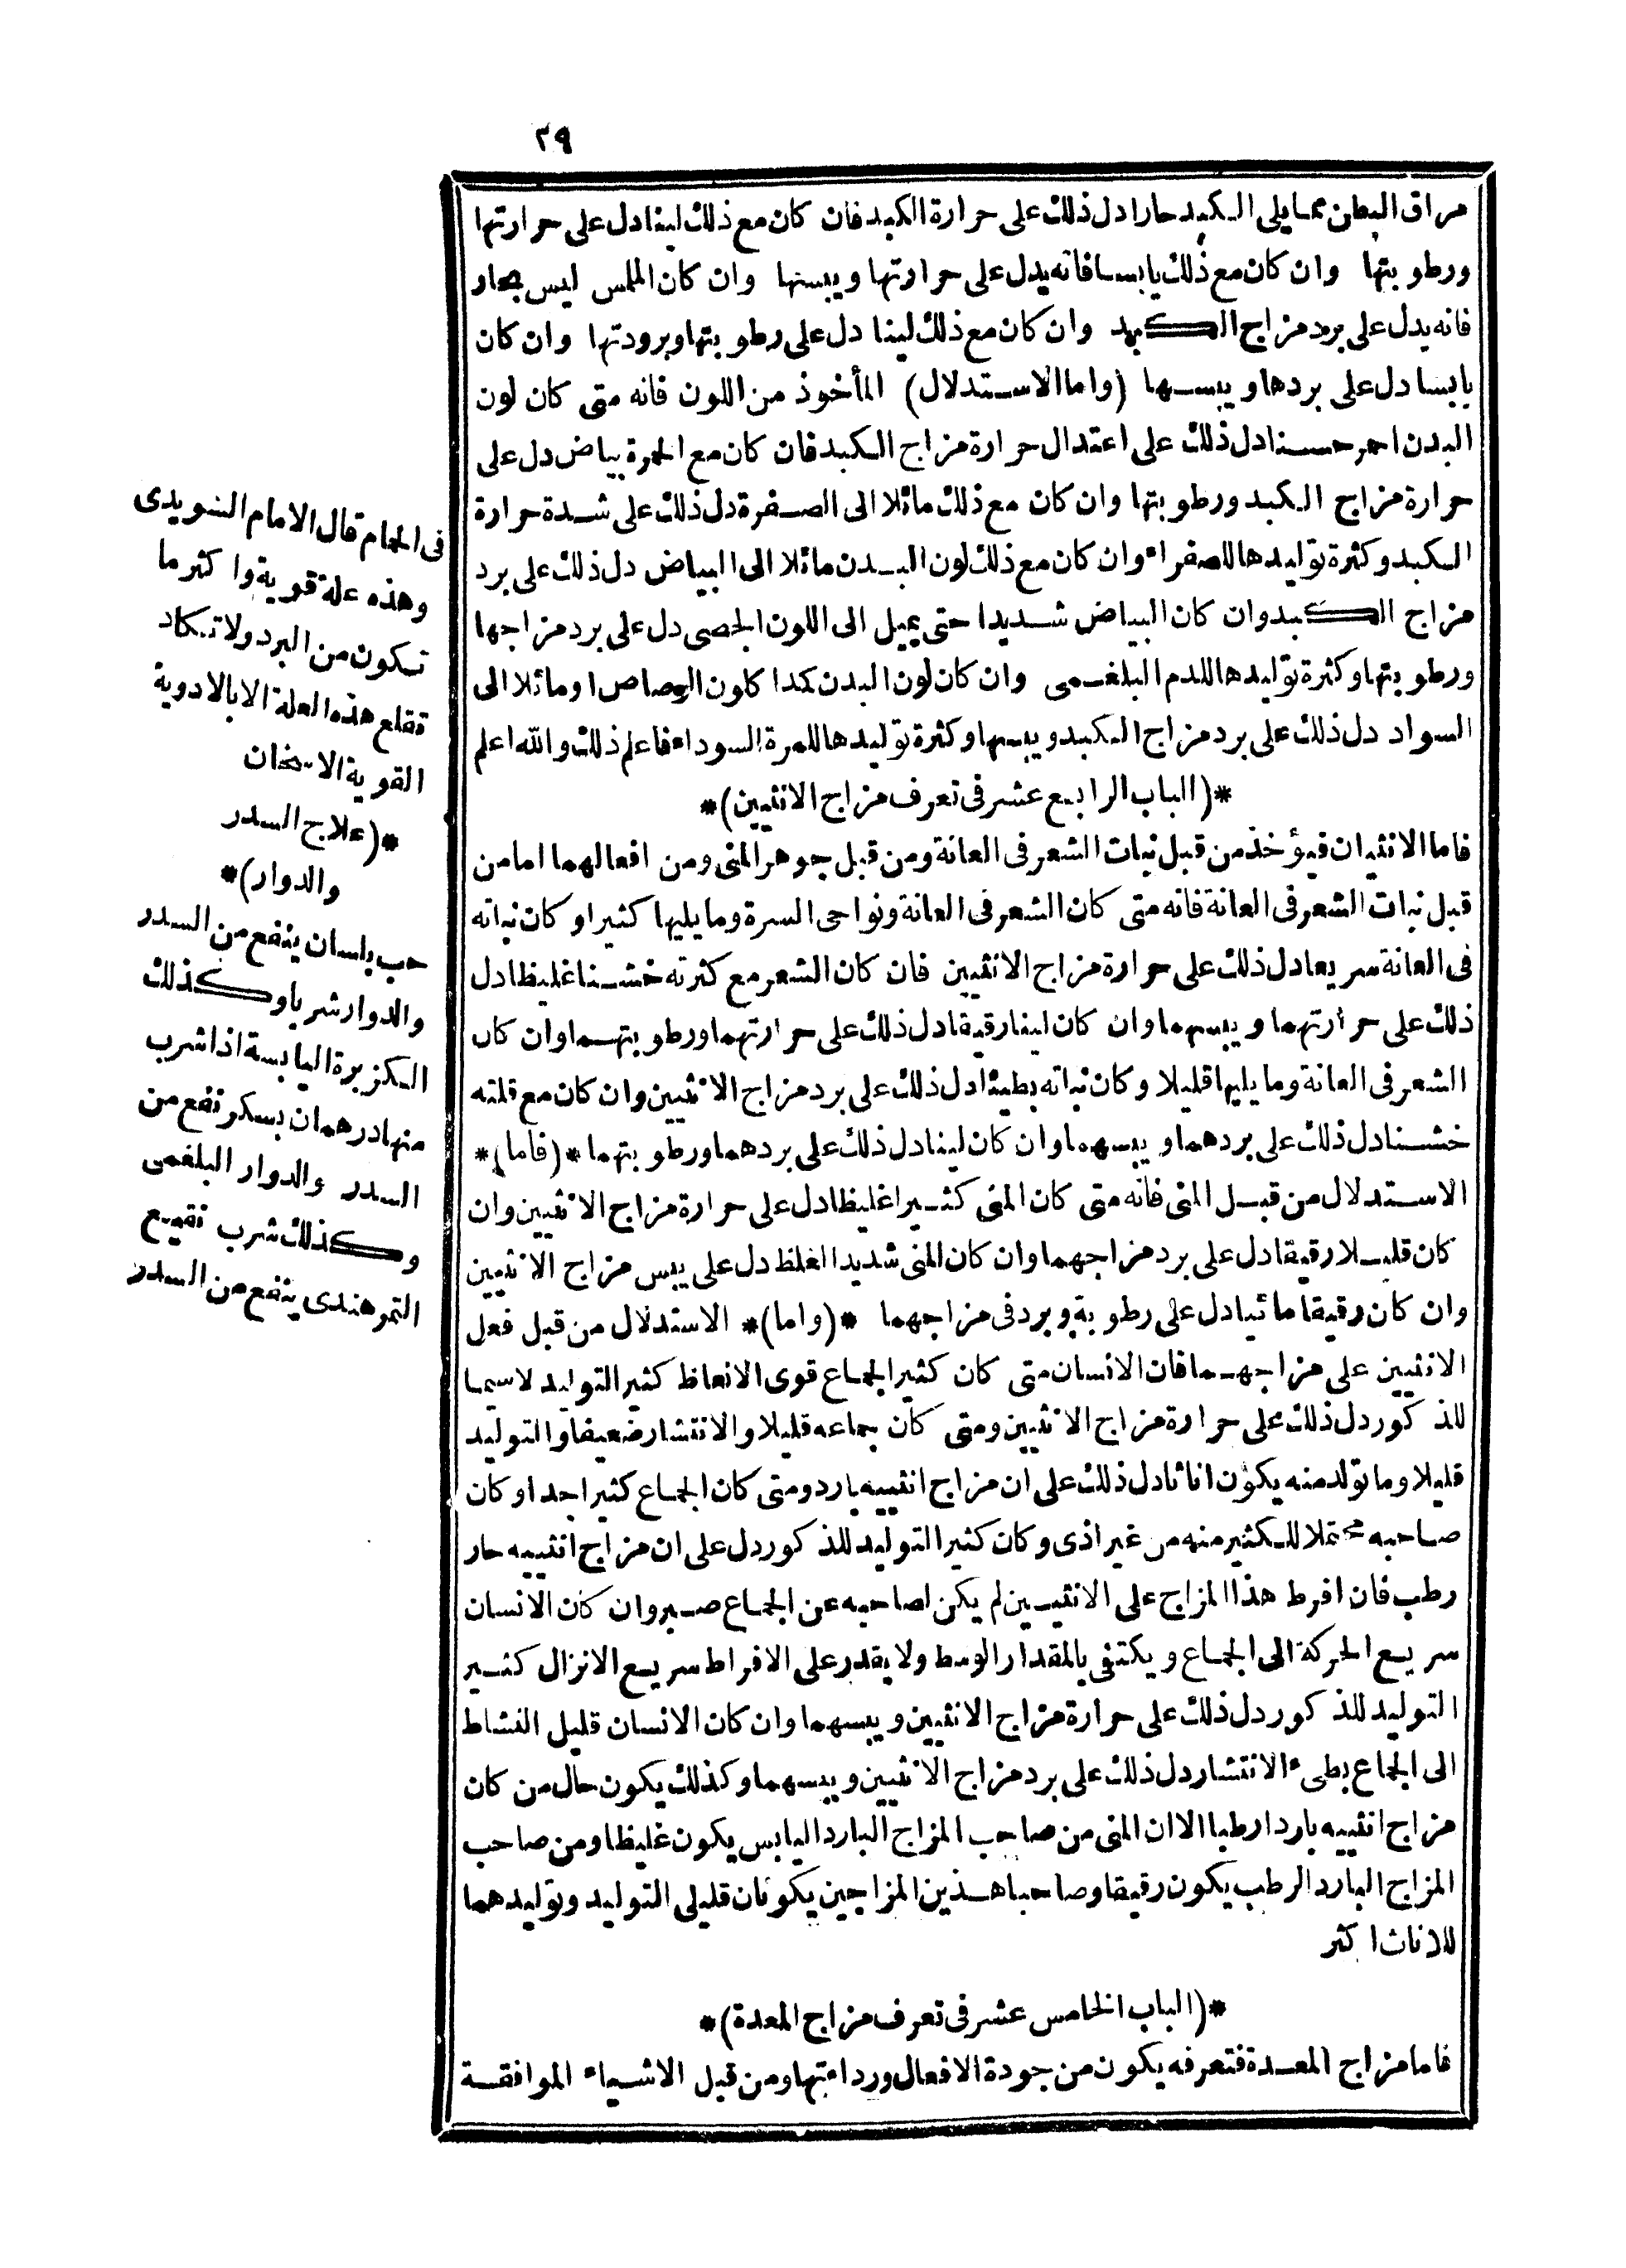 ٣٩
مراق البطن مما يلى الكبد حارا دل ذلك على حرارة الكبد فان كان مع ذلك لينا دل على حرارتها
ورطوبتها وان كان مع ذلك يابسا فانه يدل على حرارتها ويبسها وان كان الملمس ليس بحار
فانه يدل على برد مزاج الكبد وان كان مع ذلك لينا دل على رطوبتها وبرودتها وان كان
يابسا دل على بردها ويبسها (واما الاستدلال) المأخوذ من اللون فانه متى كان لون
البدن احمر حسنا دل ذلك على اعتدال حرارة مزاج الكبد فان كان مع الحمرة بياض دل على
حرارة مزاج الكبد ورطوبتها وان كان مع ذلك مائلا الى الصفرة دل ذلك على شدة حرارة
الكبد وكثرة توليدها للصفراء وان كان مع ذلك لون البدن مائلا الى البياض دل ذلك على برد
مزاج الكبد وان كان البياض شديدا حتى يميل الى اللون الجصى دل على برد مزاجها
ورطوبتها وكثرة توليدها للدم البلغمى وان كان لون البدن كمدا كلون الرصاص او مائلا الى
السواد دل ذلك على برد مزاج الكبد ويبسها وكثرة توليدها للمرة السوداء فاعلم ذلك والله اعلم
*(الباب الرابع عشر فى تعرف مزاج الانثيين)*
فاما الانثيان فيؤخذ من قبل نبات الشعر فى العانة ومن قبل جوهر المنى ومن افعالهما اما من
قبل نبات الشعر فى العانة فانه متى كان الشعر فى العانة ونواحى السرة وما يليها كثيرا وكان نباته
فى العانة سريعا دل ذلك على حرارة مزاج الانثيين فان كان الشعر مع كثرته خشنا غليظا دل
ذلك على حرارتهما ويبسهما وان كان لينا رقيقا دل ذلك على حرارتهما ورطوبتهما وان كان
الشعر فى العانة وما يليها قليلا وكان نباته بطيئا دل ذلك على برد مزاج الانثيين وان كان مع قلته
خشنا دل ذلك على بردهما ويبسهما وان كان لينا دل ذلك على بردهما ورطوبتهما *(فاما)*
الاستدلال من قبل المنى فانه متى كان المنى كثيرا غليظا دل على حرارة مزاج الانثيين وان
كان قليلا رقيقا دل على برد مزاجهما وان كان المنى شديد الغلظ دل على يبس مزاج الانثيين
وان كان رقيقا مائيا دل على رطوبة وبرد فى مزاجهما *(واما)* الاستدلال من قبل فعل
الانثيين على مزاجهما فان الانسان متى كان كثير الجماع قوى الانعاظ كثير التوليد لاسيما
للذكور دل ذلك على حرارة مزاج الانثيين ومتى كان جماعه قليلا والانتشار ضعيفا والتوليد
قليلا وما تولد منه يكون اناثا دل ذلك على ان مزاج انثييه بارد ومتى كان الجماع كثيرا جدا وكان
صاحبه محتملا للكثير منه من غير اذى وكان كثير التوليد للذكور دل على ان مزاج انثييه حار
رطب فان افرط هذا المزاج على الانثيين لم يكن لصاحبه عن الجماع صبر وان كان الانسان
سريع الحركة الى الجماع ويكتفى بالمقدار الوسط ولا يقدر على الافراط سريع الانزال كثير
التوليد للذكور دل ذلك على حرارة مزاج الانثيين ويبسهما وان كان الانسان قليل النشاط
الى الجماع بطىء الانتشار دل ذلك على برد مزاج الانثيين ويبسهما وكذلك يكون حال من كان
مزاج انثييه باردا رطبا الا ان المنى من صاحب المزاج البارد اليابس يكون غليظا ومن صاحب
المزاج البارد الرطب يكون رقيقا وصاحبا هذين المزاجين يكونان قليلى التوليد وتوليدهما
للاناث اكثر
*(الباب الخامس عشر فى تعرف مزاج المعدة)*
فاما مزاج المعدة فتعرفه يكون من جودة الافعال ورداءتها ومن قبل الاشياء الموافقة
فى الحمام قال الامام السويدى
وهذه علة قوية واكثر ما
تكون من البرد ولا تكاد
تقلع هذه العلة الا بالادوية
القوية الاسخان
*(علاج السدر
والدوار)*
حب بلسان ينفع من السدر
والدوار شربا وكذلك
الكزبرة اليابسة اذا شرب
منها درهمان بسكر نفع من
السدر والدوار البلغمى
وكذلك شرب نقيع
التمر هندى ينفع من السدر